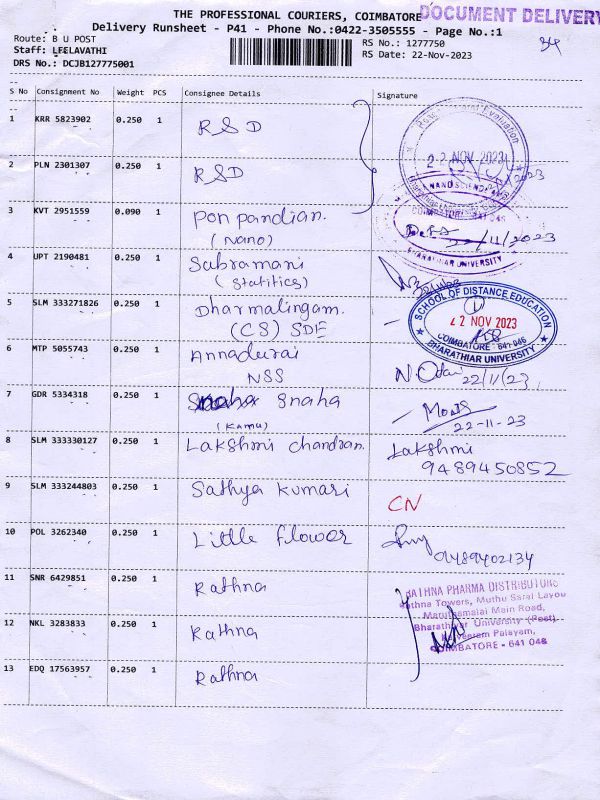 THE PROFESSIONAL COURIERS, COIMBATORE
DOCUMENT DELIVERY
Delivery Runsheet - P41 - Phone No.:0422-3505555 - Page No.:1
Route: B U POST
Staff: LEELAVATHI
DRS No.: DCJB127775001
RS No.: 1277750
RS Date: 22-Nov-2023
S No Consignment No Weight PCS Consignee Details Signature
1 KRR 5823902 0.250 1 RSD
22 NOV 2023
2 PLN 2301307 0.250 1 RSD
3 KVT 2951559 0.090 1 Pon pandian.
(Nano)
22/11/2023
BHARATHIAR UNIVERSITY
4 UPT 2190481 0.250 1 Subramani
(Statitics)
5 SLM 333271826 0.250 1 Dharmalingam.
(CS) SDE
SCHOOL OF DISTANCE EDUCATION
22 NOV 2023
COIMBATORE - 641 046
BHARATHIAR UNIVERSITY
6 MTP 5055743 0.250 1 Annadurai
NSS
22/11/23
7 GDR 5334318 0.250 1 Snaha
(Kamu)
22-11-23
8 SLM 333330127 0.250 1 Lakshmi chandran. Lakshmi
9489450852
9 SLM 333244803 0.250 1 Sathya kumari CN
10 POL 3262340 0.250 1 Little flower
9489402134
11 SNR 6429851 0.250 1 Rathna
RATHNA PHARMA DISTRIBUTORS
Rathna Towers, Muthu Sarai Layou
Maruthamalai Main Road,
Bharathiyar University (Post)
12 NKL 3283833 0.250 1 Rathna
Palayam,
COIMBATORE - 641 046
13 EDQ 17563957 0.250 1 Rathna